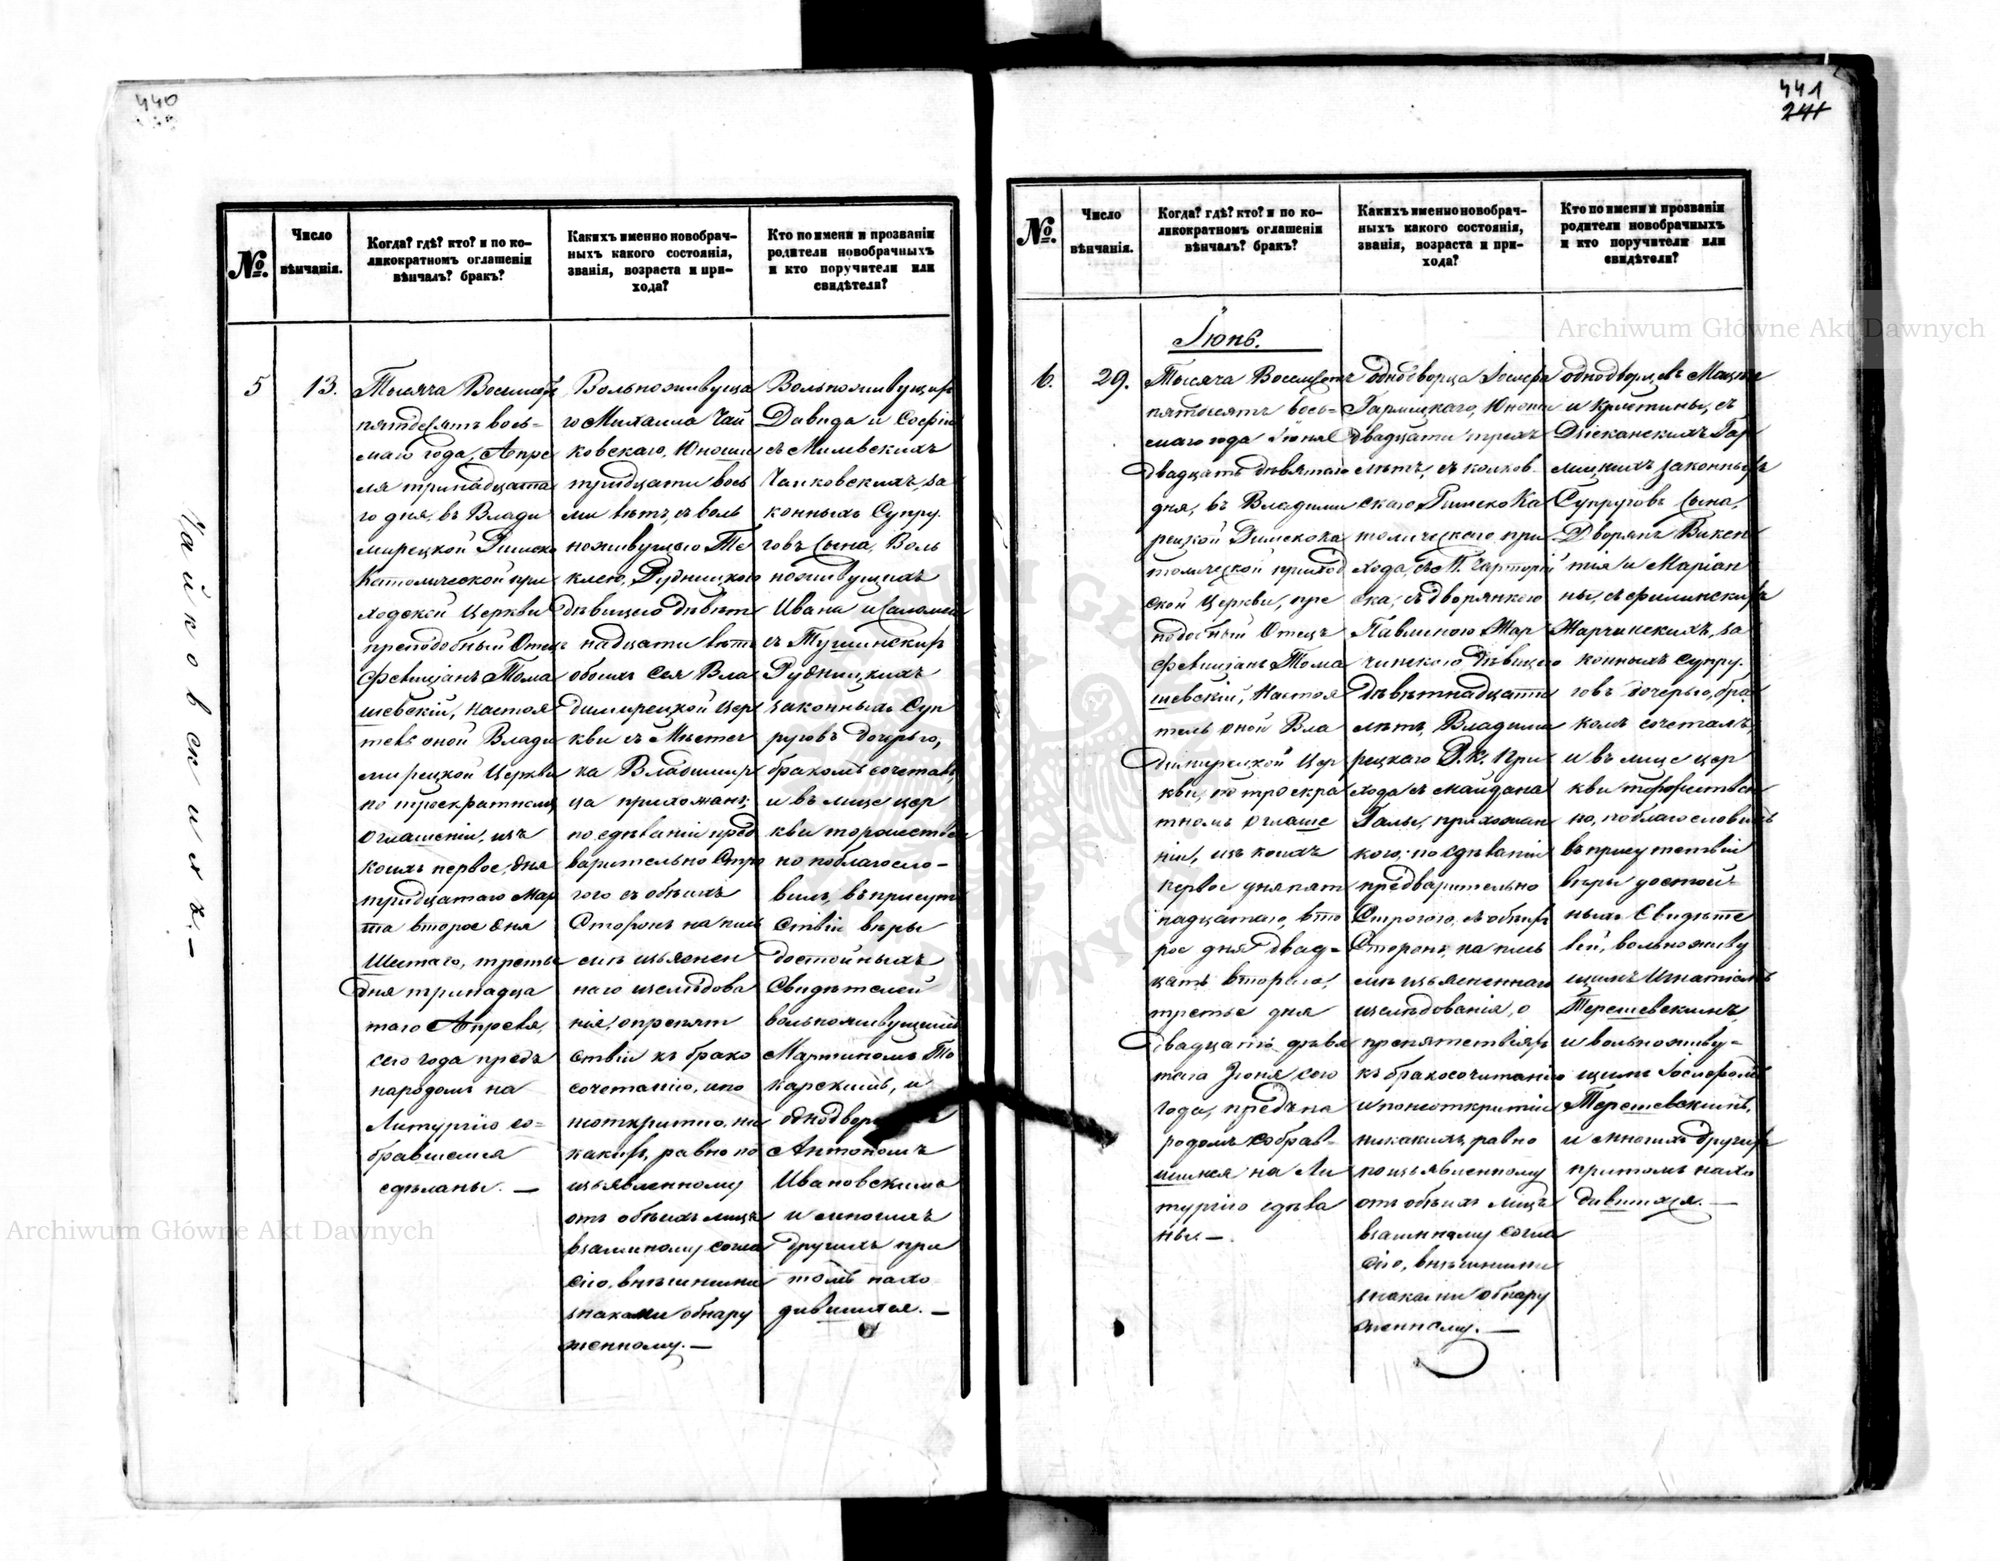 440
Чайковскихъ.
№.
Число
вѣнчанія.
Когда? гдѣ? кто? и по ко-
ликократномъ оглашеніи
вѣнчалъ? бракъ?
Какихъ именно новобрач-
ныхъ какого состоянія,
званія, возраста и при-
хода?
Кто по имени и прозваніи
родители новобрачныхъ
и кто поручители или
свидѣтели?
5
13.
Тысяча Восемьсотъ
пятдесятъ вось-
маго года, Апре
ля тринадцата
го дня, въ Влади
мирецкой Римско
Католической при
ходской Церкви
преподобный Отецъ
Фелиціанъ Тома
шевскій, настоя
тель оной Влади
мирецкой Церкви
по троекратномъ
оглашеніи, изъ
коихъ первое, дня
тридцатаго Мар
та второе дня
Шестаго, третье
дня тринадца
таго Апреля,
сего года предъ
народомъ на
Литургію со-
бравшемся
сдѣланы. —
Вольноживуща
го Михаила Чай
ковскаго, Юношу
тридцати вось
ми лѣтъ, съ воль
ноживущею Те
клею, Рудницкою
дѣвицею девят
надцати лѣтъ
обоихъ сея Вла
димирецкой Цер
кви съ Мѣстеч
ка Владимир
ца прихожанъ;
по сдѣланіи пред
варительно Стро
гого съ обѣихъ
Сторонъ на пись
мѣ изъяснен
наго изслѣдова
нія, о препят
ствіи къ брако
сочетанію, и по
неоткрытію, ни
какихъ, равно по
изъявленному
отъ обѣихъ лицъ
взаимному согла
сію, внѣшними
знаками обнару
женному. —
Вольноживущихъ
Давида и Софіи
съ Милевскихъ
Чайковскихъ, за
конныхъ Супру
говъ Сына, Воль
ноживущихъ
Ивана и Саломеи
съ Тушинскихъ
Рудницкихъ
законныхъ Суп
руговъ дочерью,
бракомъ сочеталъ,
и въ лице цер
кви торжествен
но поблагосло-
вилъ, въ присут
ствіи вѣры
достойныхъ
Свидѣтелей
вольноживущими
Мартиномъ То
карскимъ, и
однодвор
Антономъ
Ивановскимъ
и многихъ
другихъ при
томъ нахо
дившихся. —
441
241
№.
Число
вѣнчанія.
Когда? гдѣ? кто? и по ко-
ликократномъ оглашеніи
вѣнчалъ? бракъ?
Какихъ именно новобрач-
ныхъ какого состоянія,
званія, возраста и при-
хода?
Кто по имени и прозваніи
родители новобрачныхъ
и кто поручители или
свидѣтели?
Іюнь.
6.
29.
Тысяча Восемсотъ
пятьдесятъ вось-
маго года Іюня
двадцать девятаго
дня, въ Владими
рецкой Римскока
толической приход
ской Церкви, пре
подобный Отецъ
Фелиціанъ Тома
шевскій, Настоя
тель оной Вла
димирецкой Цер
кви, по троекра
тномъ оглаше
ніи, изъ коихъ
первое дня пят
надцатаго, вто
рое дня двад-
цать втораго,
третье дня
двадцать девя
таго Іюня сего
года, предъ на
родомъ собрав-
шимся на Ли
тургію сдѣла
ны —
однодворца Іосифа
Гармицкаго, Юношу
двадцати трехъ
лѣтъ, съ
скаго Римско Ка
толическаго при
хода, съ М. Чарторій
ска, съ дворянкою
Павлиною Жар
чинскою дѣвицею
девятнадцати
лѣтъ, Владими
рецкаго Р. К. При
хода съ майдана
Галы, прихожан
кою; по сдѣланіи
предварительно
Строгого, съ обѣихъ
Сторонъ, на пись
мѣ изъясненнаго
изслѣдованія, о
препятствіяхъ
къ бракосочитанію
и по неоткрытіи
никакихъ, равно
по изъявленному
отъ обѣихъ лицъ
взаимному согла
сію, внѣшними
знаками обнару
женному. —
однодворцевъ
и Кристины, съ
законныхъ
Супруговъ Сына,
Дворянъ Викен
тія и Маріан
ны, съ Филинскихъ
Жарчинскихъ, за
конныхъ Супру-
говъ дочерью, бра
комъ сочеталъ,
и въ лице цер
кви торжествен
но, поблагословилъ
въ присутствіи
вѣры достой-
ныхъ Свидѣте
лей, вольноживу
щимъ Игнатіемъ
Терешевскимъ,
и вольноживу-
щимъ Іосифомъ
Терешевскимъ,
и многихъ другихъ
притомъ нахо
дившихся. —
Archiwum Główne Akt Dawnych
Archiwum Główne Akt Dawnych